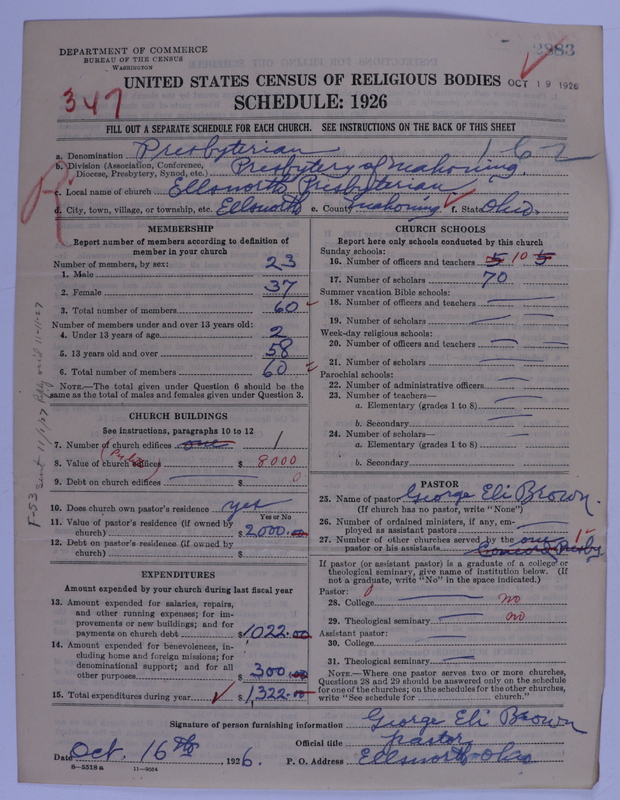 DEPARTMENT OF COMMERCE
BUREAU OF THE CENSUS
WASHINGTON
2883
UNITED STATES CENSUS OF RELIGIOUS BODIES
OCT 19 1926
347
SCHEDULE: 1926
FILL OUT A SEPARATE SCHEDULE FOR EACH CHURCH. SEE INSTRUCTIONS ON THE BACK OF THIS SHEET
a. Denomination Presbyterian 162
b. Division (Association, Conference, Diocese, Presbytery, Synod, etc.) Presbytery of Mahoning.
c. Local name of church Ellsworth Presbyterian
d. City, town, village, or township, etc. Ellsworth e. County Mahoning f. State Ohio.
MEMBERSHIP
Report number of members according to definition of member in your church
Number of members, by sex:
1. Male 23
2. Female 37
3. Total number of members 60
Number of members under and over 13 years old:
4. Under 13 years of age 2
5. 13 years old and over 58
6. Total number of members 60
NOTE.—The total given under Question 6 should be the
same as the total of males and females given under Question 3.
CHURCH BUILDINGS
See instructions, paragraphs 10 to 12
7. Number of church edifices one 1
8. Value of church edifices $ 8000
9. Debt on church edifices $ 0
10. Does church own pastor's residence yes
Yes or No
11. Value of pastor's residence (if owned by
church) $ 2,000.00
12. Debt on pastor's residence (if owned by
church) $
EXPENDITURES
Amount expended by your church during last fiscal year
13. Amount expended for salaries, repairs,
and other running expenses; for im-
provements or new buildings; and for
payments on church debt $ 1022.00
14. Amount expended for benevolences, in-
cluding home and foreign missions; for
denominational support; and for all
other purposes $ 300.00
15. Total expenditures during year $ 1,322.00
CHURCH SCHOOLS
Report here only schools conducted by this church
Sunday schools:
16. Number of officers and teachers 5 10 5
17. Number of scholars 70
Summer vacation Bible schools:
18. Number of officers and teachers
19. Number of scholars
Week-day religious schools:
20. Number of officers and teachers
21. Number of scholars
Parochial schools:
22. Number of administrative officers
23. Number of teachers—
a. Elementary (grades 1 to 8)
b. Secondary
24. Number of scholars—
a. Elementary (grades 1 to 8)
b. Secondary
PASTOR
25. Name of pastor George Eli Brown.
(If church has no pastor, write "None")
26. Number of ordained ministers, if any, em-
ployed as assistant pastors
27. Number of other churches served by the one 1
pastor or his assistants
If pastor (or assistant pastor) is a graduate of a college or
theological seminary, give name of institution below. (If
not a graduate, write "No" in the space indicated.)
Pastor:
28. College no
29. Theological seminary no
Assistant pastor:
30. College
31. Theological seminary
NOTE.—Where one pastor serves two or more churches,
Questions 28 and 29 should be answered only on the schedule
for one of the churches; on the schedules for the other churches,
write "See schedule for church."
Signature of person furnishing information George Eli Brown
Official title pastor
Date Oct. 16th, 1926. P. O. Address Ellsworth Ohio
8—5318 a 11—9064